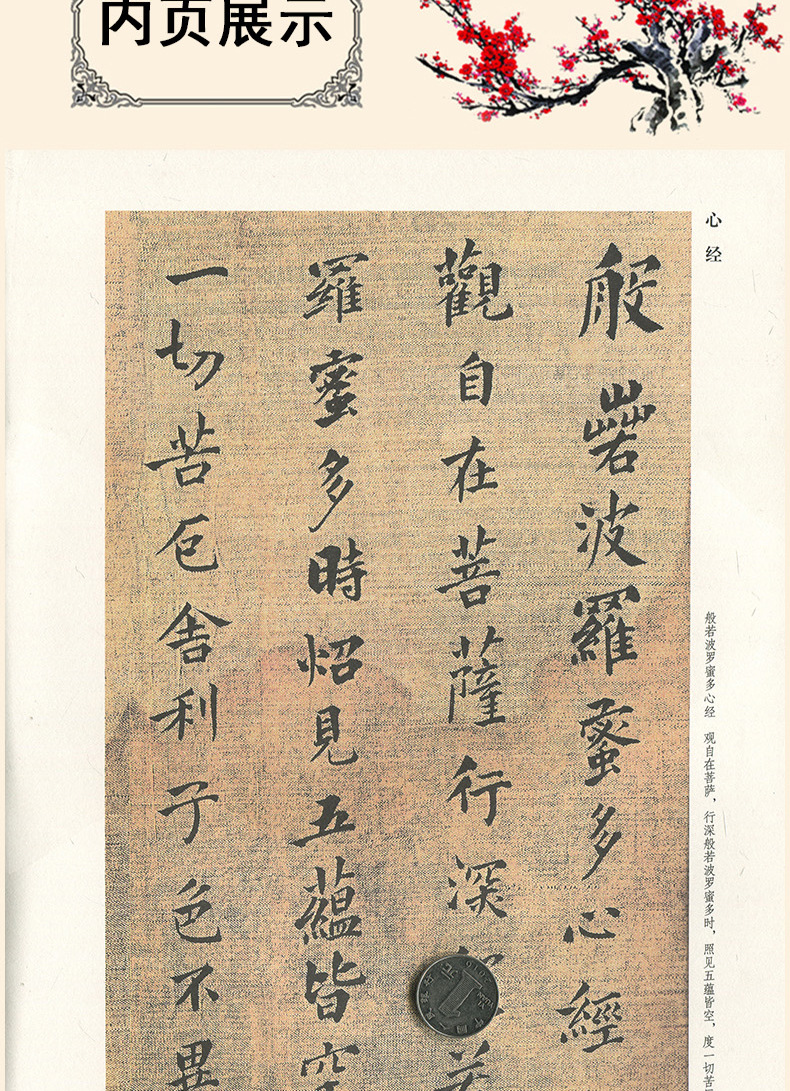 内页展示
心经
般若波羅蜜多心經
觀自在菩薩行深
羅蜜多時炤見五蘊皆空
一切苦厄舍利子色不異
般若波罗蜜多心经 观自在菩萨，行深般若波罗蜜多时，照见五蕴皆空，度一切苦
1